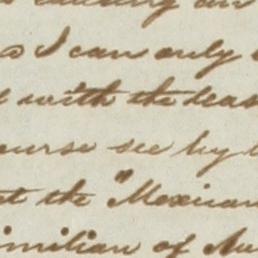 an
I can only
with the leas
ourse see by
the "Mexican
imilian of Au